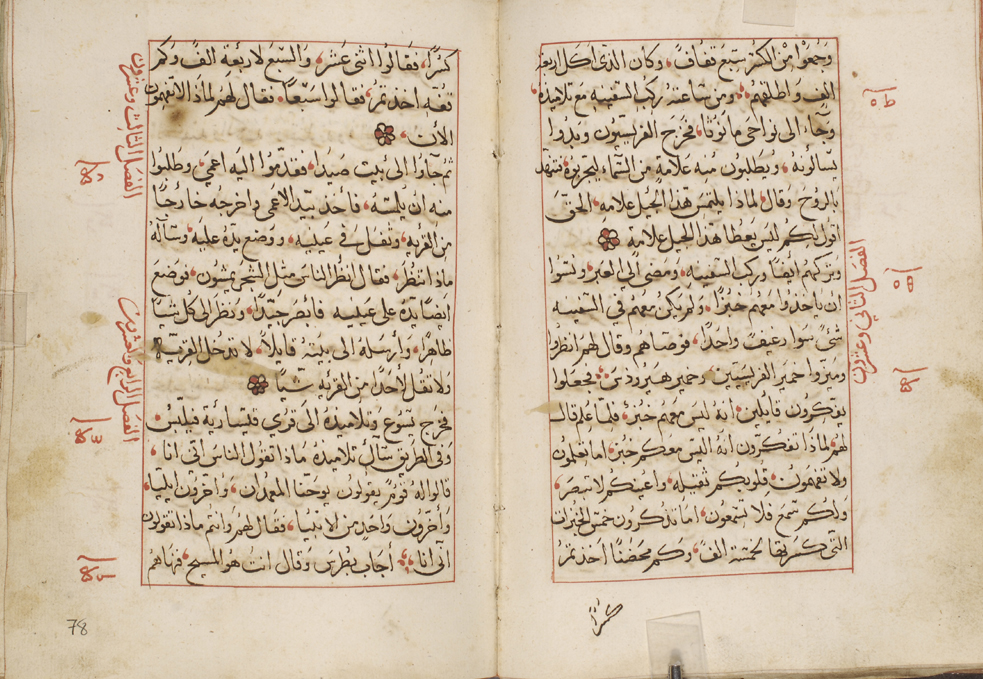 وجمعوا من الكسر سبع قفاف وكان الذي اكل اربعة
الف واطلقهم ومن ساعته ركب السفينه مع تلاميذه
وجاء الى نواحي مانوثا فخرج الفريسيون وبدوا
يسالونه ويطلبون منه علامة من السماء ليجربوه فتنهد
بالروح وقال لماذا يلتمس هذا الجيل علامه الحق
اقول لكم ليس يعطا هذا الجيل علامة
وتركهم ايضا وركب السفينه ومضى الي العبر ونسوا
ان ياخذوا معهم خبزا ولم يكن معهم في السفينه
شي سوا رغيف واحد فوصاهم وقال لهم انظروا
وميزوا خمير الفريسيين وخمير هيرودس فجعلوا
يفكرون قايلين انه ليس معهم خبز فلما علم قال
لهم لماذا تفكرون انه ليس معكم خبز اما تعلمون
ولا تفهمون قلوبكم ثقيله واعينكم لا تبصر
ولكم سمع فلا تسمعون اما تذكرون خمس الخبزات
التي كسرتها لخمسة الف وكم محصنا اخذتم
كسرا
الفصل الثاني وعشرون
كسرا فقالوا اثنى عشر والسبع لاربعة الف وكم
قفه اخذتم فقالوا سبعا فقال لهم لماذا لا تفهمون
الان
ثم جاوا الى بيت صيدا فقدموا اليه اعمي وطلبوا
منه ان يلمسه فاخذ بيد الاعمي واخرجه خارجا
من القريه وتفل في عينيه ووضع يده عليه وساله
ماذا تنظر فقال انظر الناس مثل الشجر يمشون فوضع
ايضا يده على عينيه فابصر جيدا ونظر الى كل شيا
ظاهرا وارسله الى بيته قايلا لا تدخل القريه
ولا تقل لاحد من القريه شيا
فخرج يسوع وتلاميذه الى قري قيساريه فيلبس
وفي الطريق سال تلاميذه ماذا تقول الناس اني انا
قالوا له قوم يقولون يوحنا المعمدان واخرون ايليا
واخرون واحد من الانبيا فقال لهم وانتم ماذا تقولون
اني انا اجاب بطرس وقال انت هو المسيح فنهاهم
الفصل الثالث وعشرون
الفصل الرابع وعشرون
78